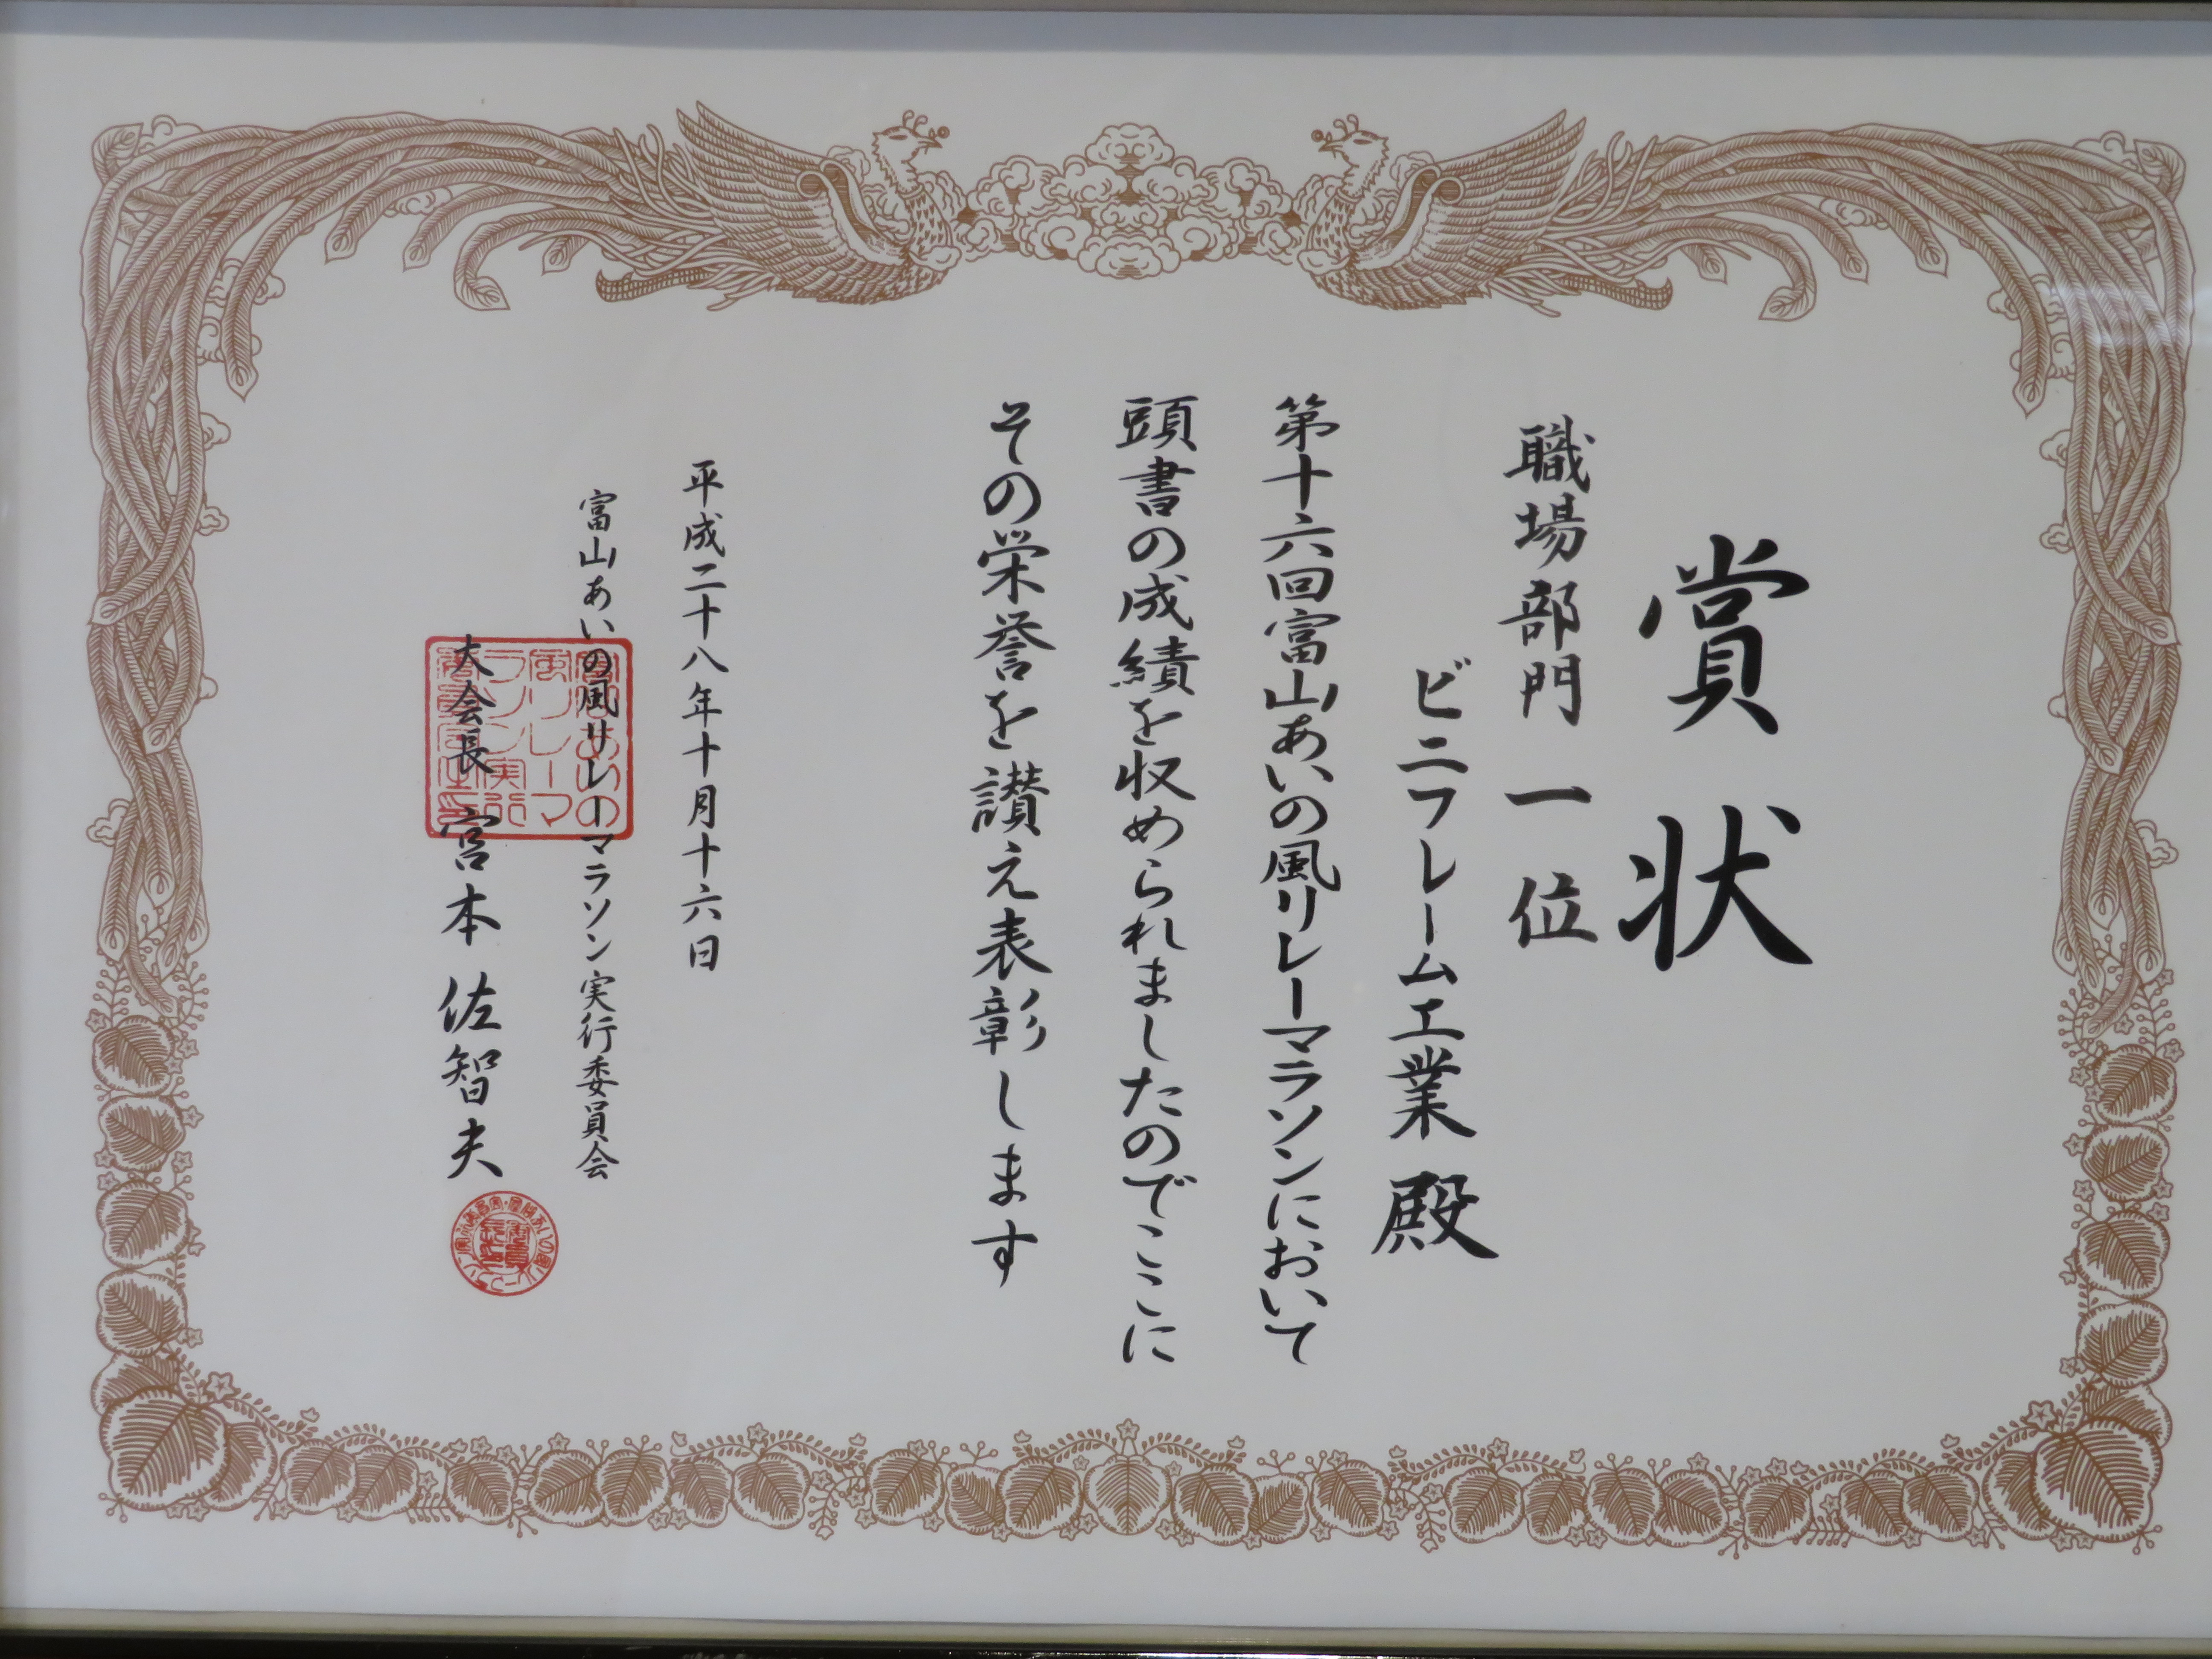 賞状
職場部門 一位
ビニフレーム工業 殿
第十六回富山あいの風リレーマラソンにおいて
頭書の成績を収められましたのでここに
その栄誉を讃え表彰します
平成二十八年十月十六日
富山あいの風リレーマラソン実行委員会
大会長 宮本 佐智夫